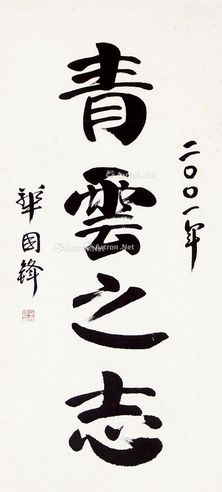 二〇〇一年
青雲之志
華國鋒
Artron.Net